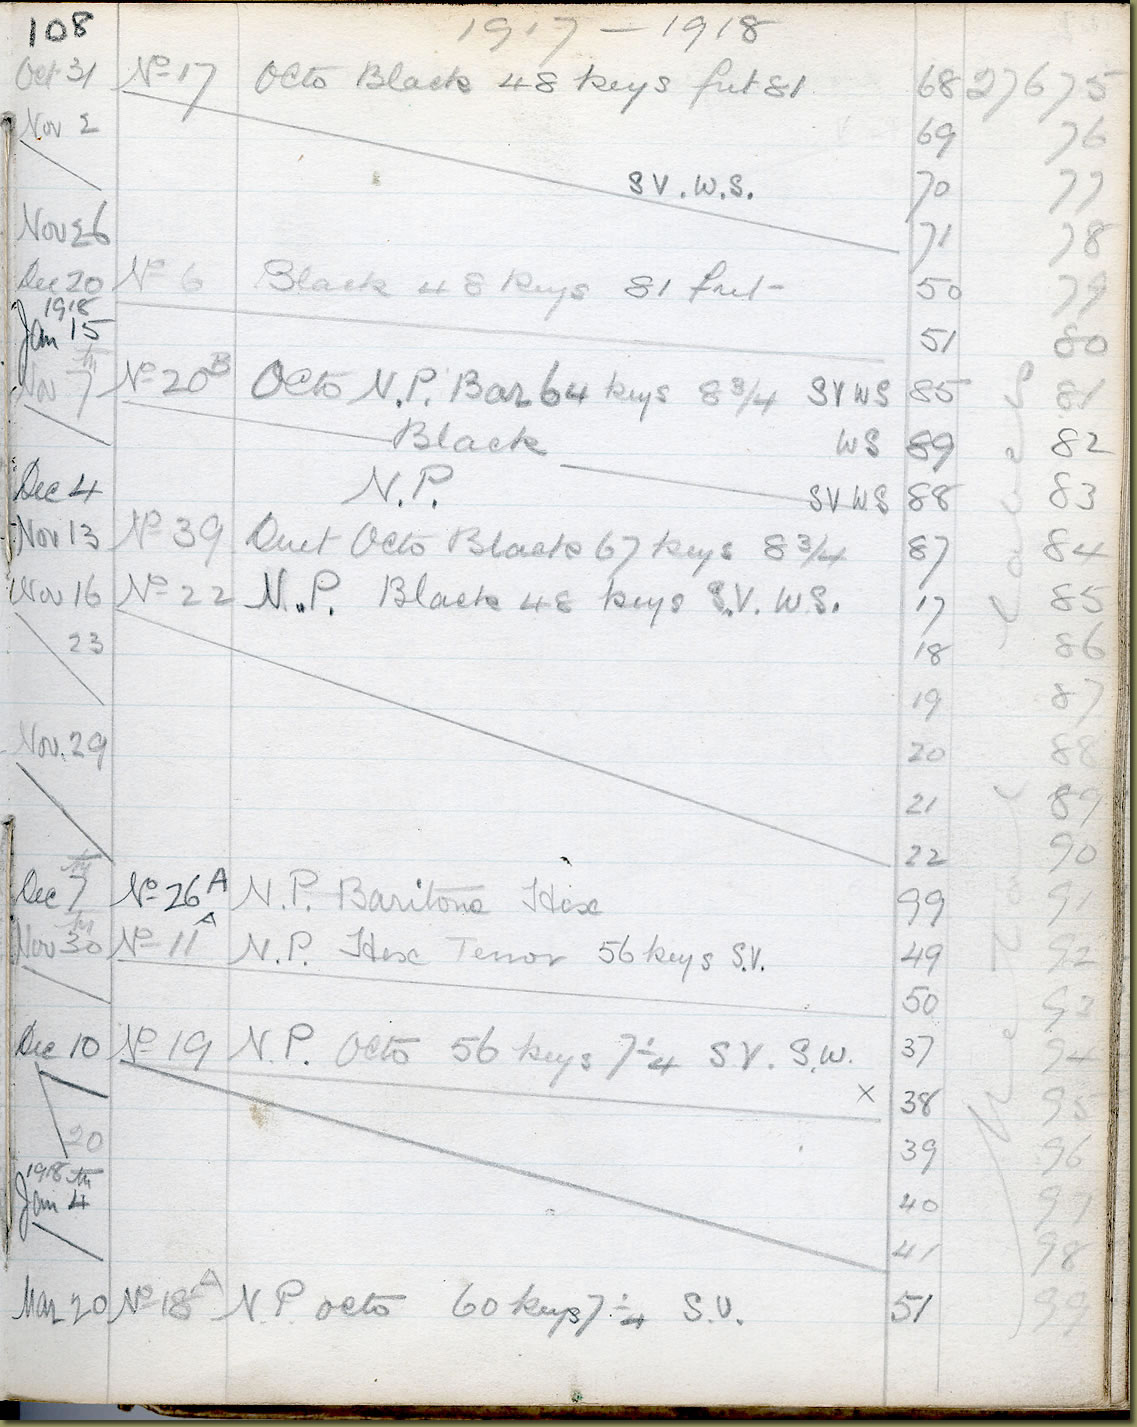 108 1917 — 1918
Oct 31 No 17 Octo Black 48 keys fret 81 68 27675
Nov 2 69 76
S V. W.S. 70 77
Nov 26 71 78
Dec 20 No 6 Black 48 keys 81 fret 50 79
1918
Jan 15 51 80
Nov 7th No 20B Octo N.P. Bar 64 keys 8 3/4 SV WS 85 81
Black WS 89 82
Dec 4 N.P. SV WS 88 83
Nov 13 No 39 Duet Octo Black 67 keys 8 3/4 87 84
Nov 16 No 22 N.P. Black 48 keys S.V. W.S. 17 85
23 18 86
19 87
Nov. 29 20 88
21 89
22 90
Dec 7th No 26A N.P. Baritone Hex 99 91
Nov 30th No 11A N.P. Hex Tenor 56 keys S.V. 49 92
50 93
Dec 10 No 19 N.P. Octo 56 keys 7 1/4 S V. S.W. 37 94
x 38 95
20 39 96
1918 th
Jan 4 40 97
41 98
Mar 20 No 18A N.P octo 60 keys 7 1/4 S.V. 51 99